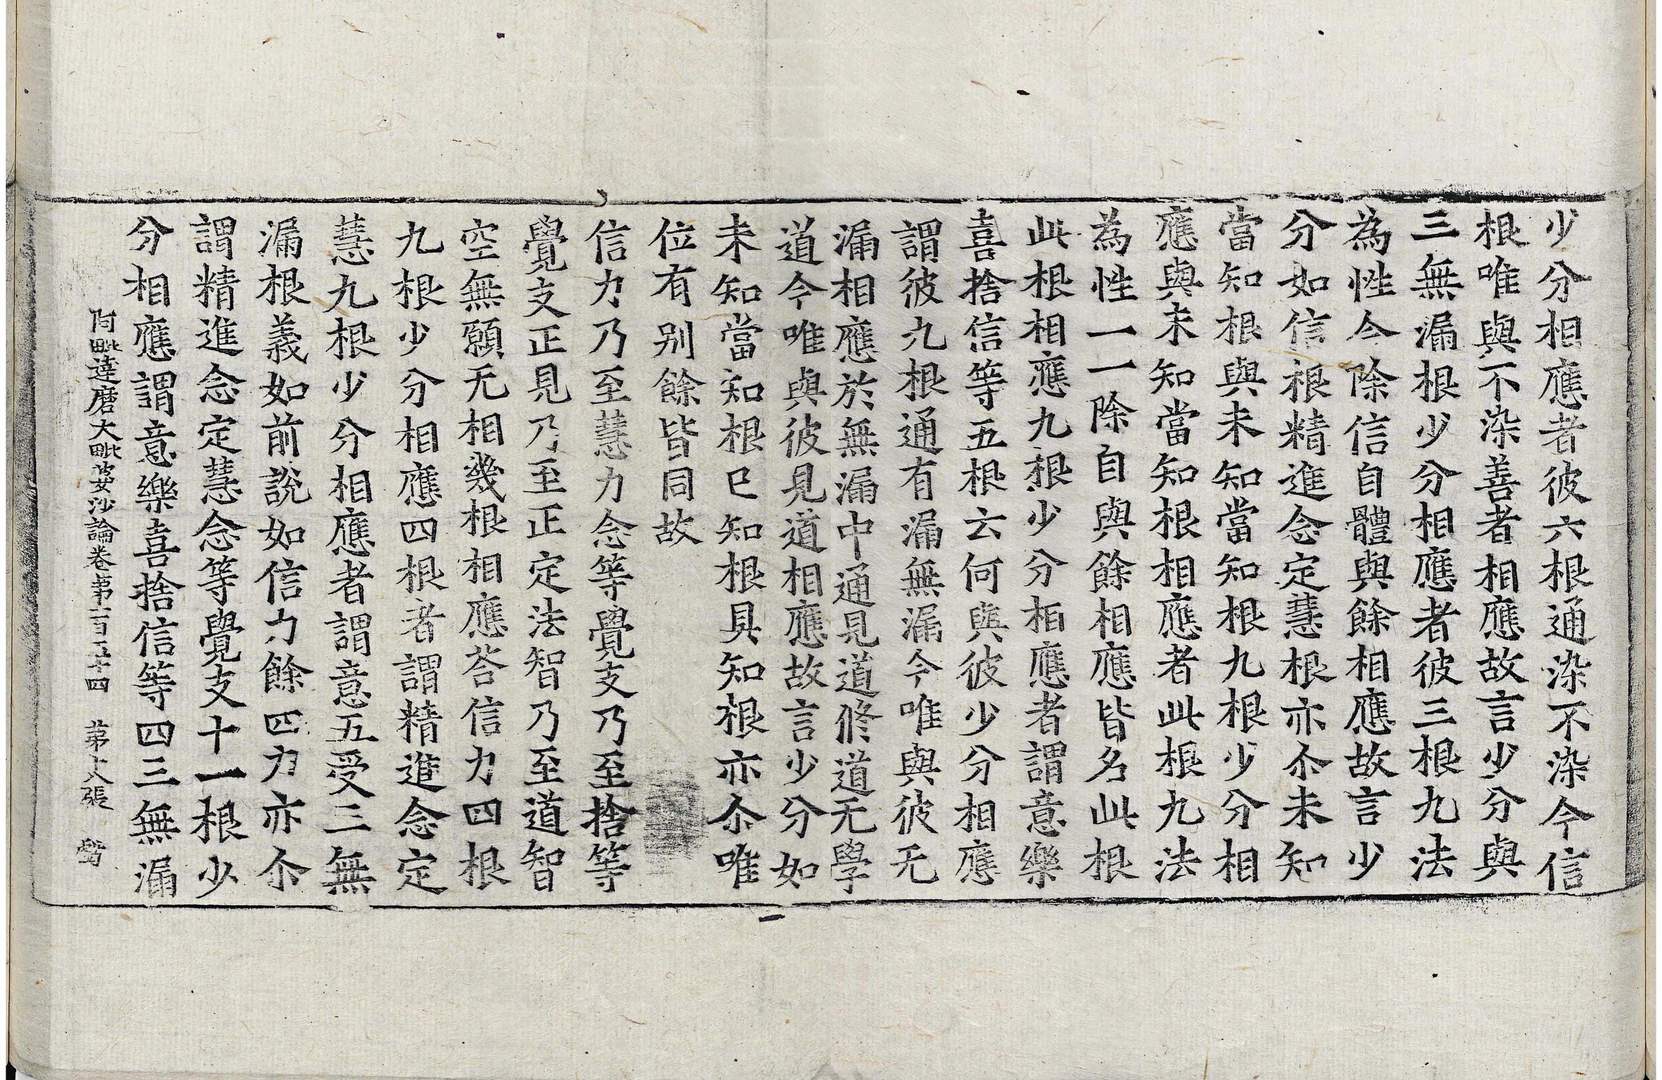 少分相應者彼六根通染不染今信
根唯與不染善者相應故言少分與
三無漏根少分相應者彼三根九法
為性今除信自體與餘相應故言少
分如信根精進念定慧根亦尒未知
當知根與未知當知根九根少分相
應與未知當知根相應者此根九法
為性一一除自與餘相應皆名此根
此根相應九根少分相應者謂意樂
喜捨信等五根云何與彼少分相應
謂彼九根通有漏無漏今唯與彼无
漏相應於無漏中通見道修道无學
道今唯與彼見道相應故言少分如
未知當知根已知根具知根亦尒唯
位有别餘皆同故
信力乃至慧力念等覺支乃至捨等
覺支正見乃至正定法智乃至道智
空無願无相幾根相應荅信力四根
九根少分相應四根者謂精進念定
慧九根少分相應者謂意五受三無
漏根義如前說如信力餘四力亦尒
謂精進念定慧念等覺支十一根少
分相應謂意樂喜捨信等四三無漏
阿毗達磨大毗婆沙論卷第一百五十四　第十六張